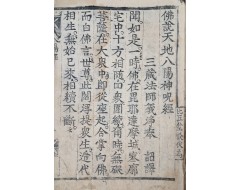 佛說天地八陽神呪經
三藏法師義淨奉 詔譯
聞如是一時佛在毘耶達摩城寥廓
宅中十方相隨四衆圍繞爾時無碍
菩薩在大衆中即從座起合掌向佛
而白佛言世尊此閻浮提衆生遞代
相生無始已來相續不斷